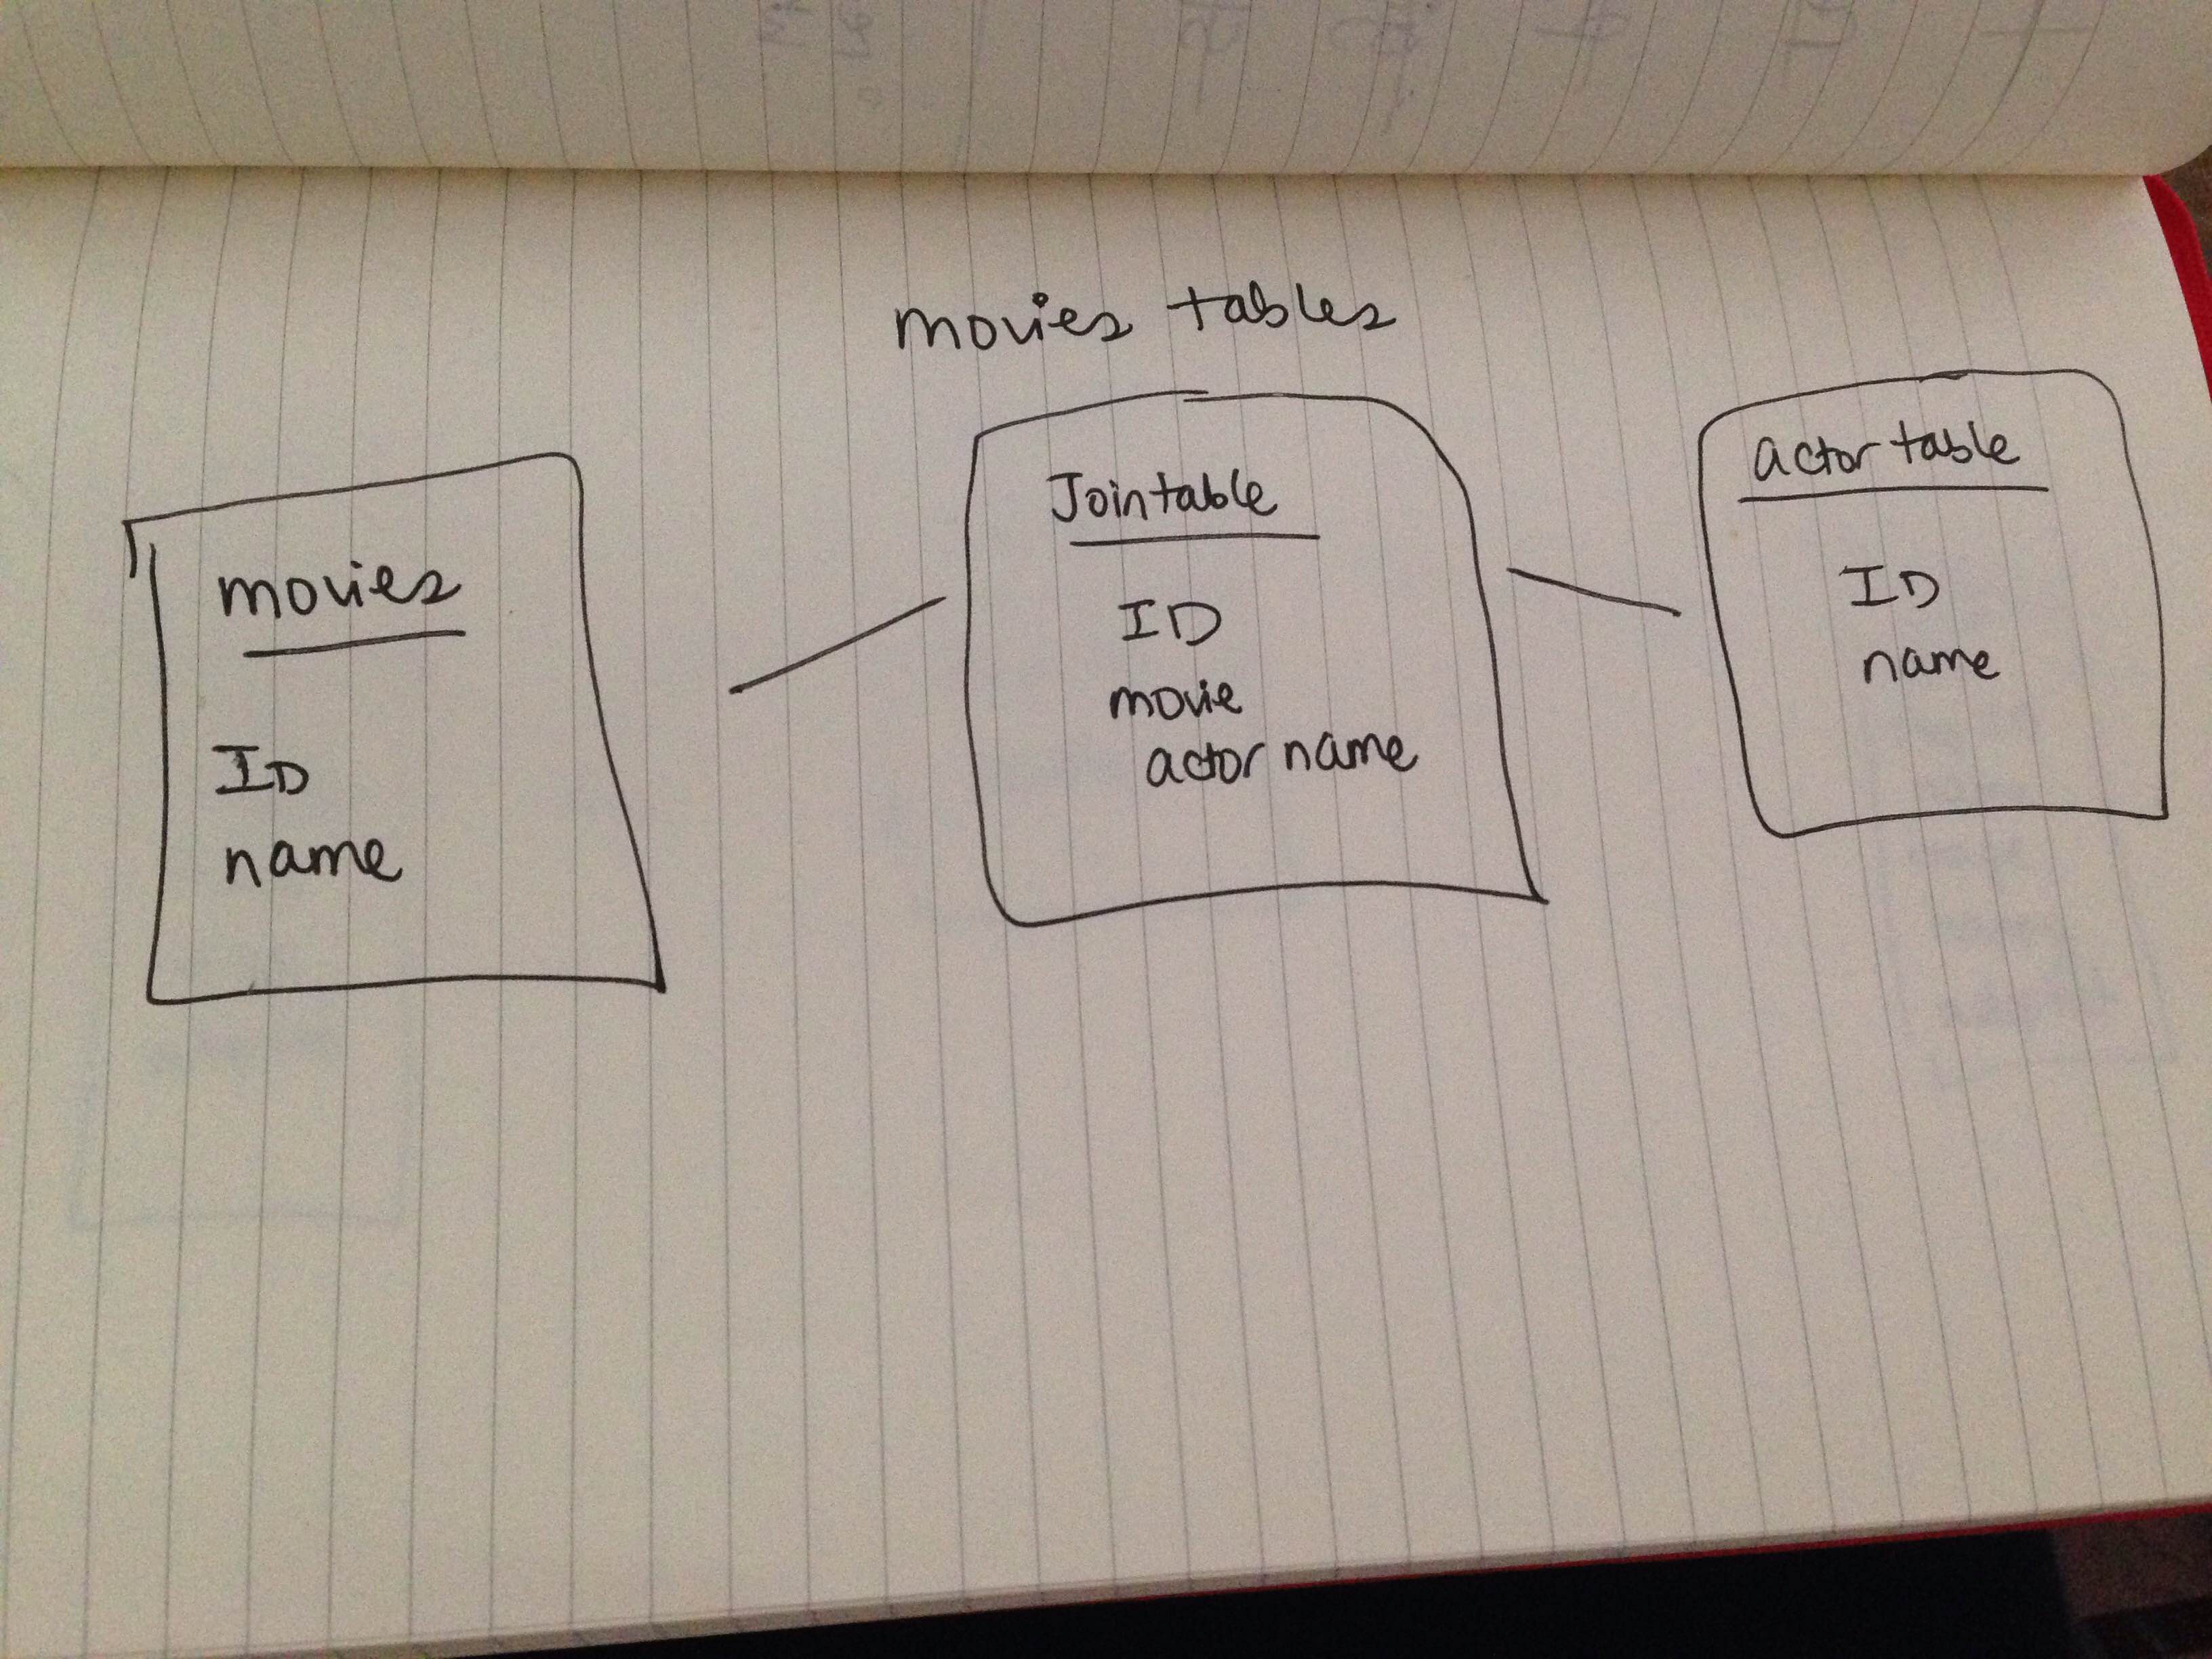 movies tables
movies
ID
name
Jointable
ID
movie
actor name
actor table
ID
name